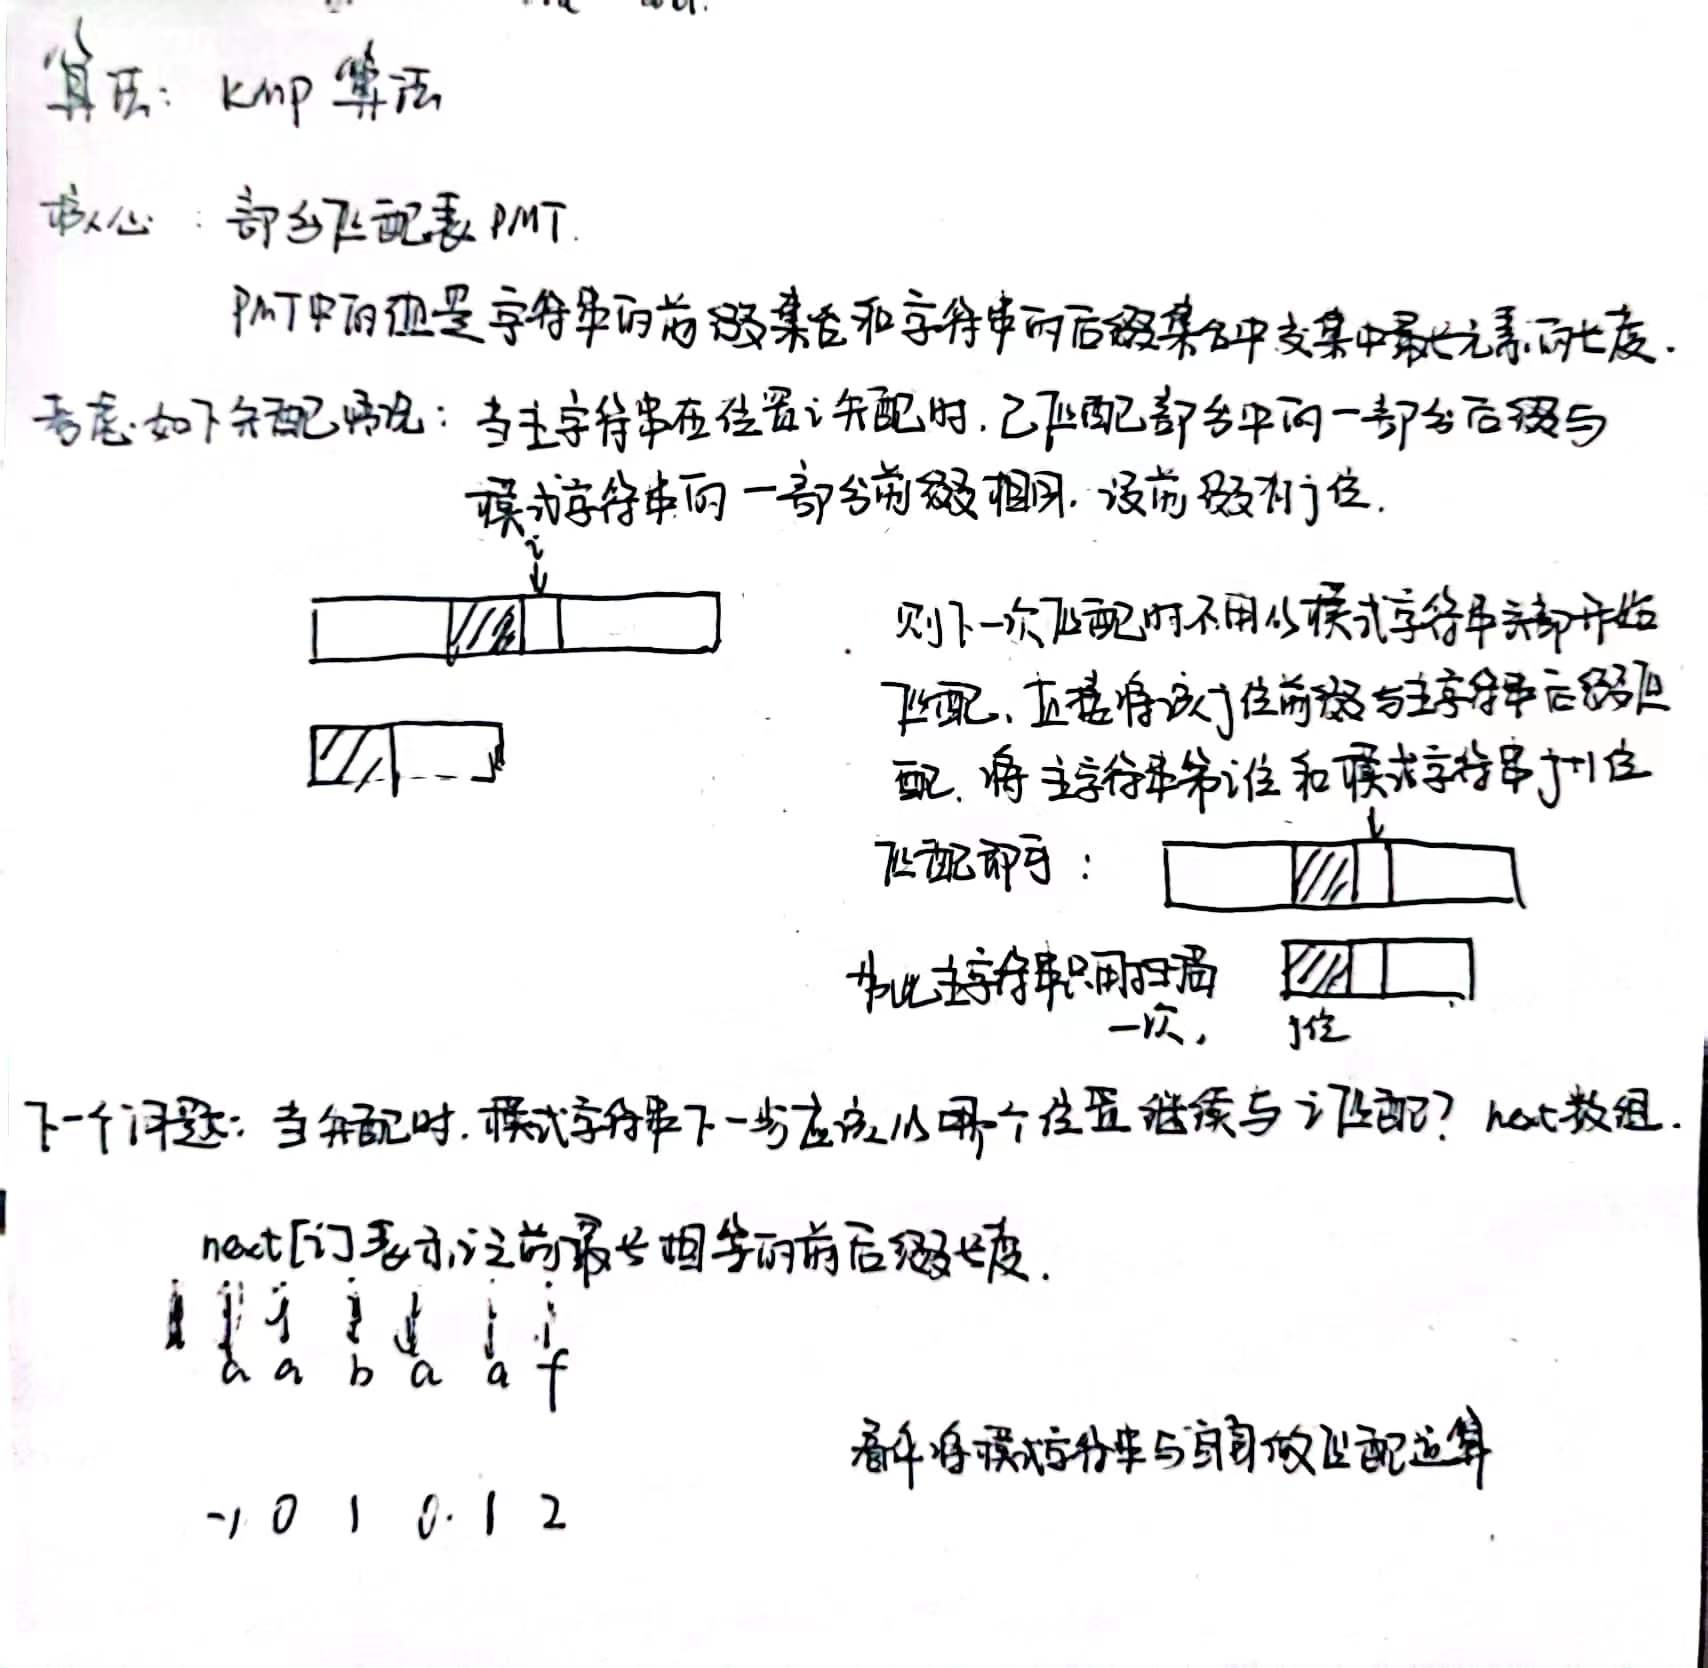 算法: KMP 算法
核心: 部分匹配表 PMT.
PMT中的值是字符串的前缀集合和字符串的后缀集合中交集中最长元素的长度.
考虑如下失配情况: 当主字符串在位置i失配时, 已匹配部分中的一部分后缀与
模式字符串的一部分前缀相同. 设前缀有j位.
i
则下一次匹配时不用从模式字符串头部开始
匹配, 直接将该j位前缀与主字符串后缀匹
配, 将主字符串第i位和模式字符串j+1位
匹配即可:
为此主字符串只用扫描
一次.
j位
下一个问题: 当失配时, 模式字符串下一步应该从哪个位置继续与i匹配? next数组.
next[i]表示i之前最长相等的前后缀长度.
a a b a a f
看作将模式字符串与自身做匹配运算
-1 0 1 0. 1 2